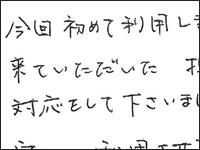 今回 初めて利用しま
来ていただいた 担
対応をして下さいまし